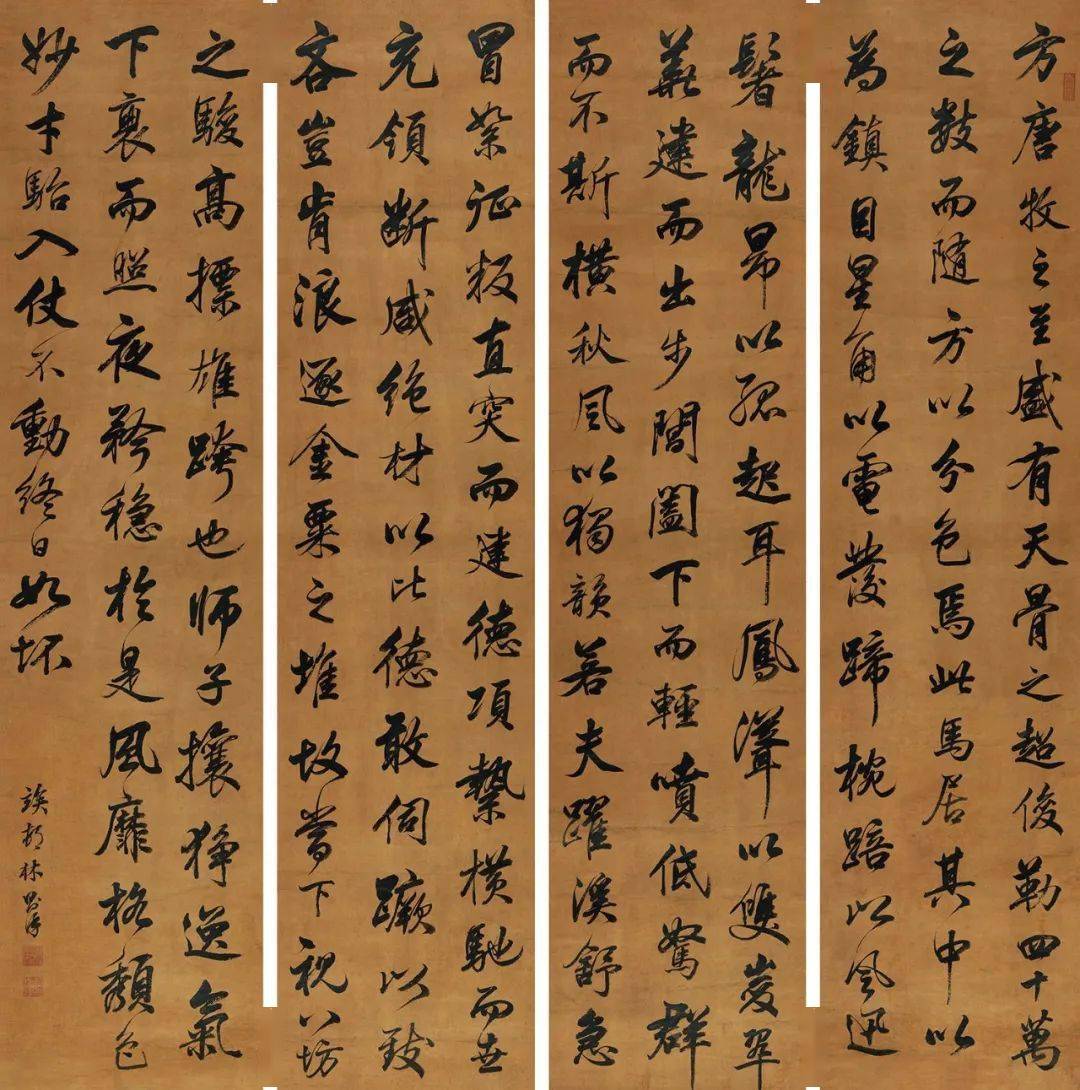 方唐牧之至盛有天骨之超俊勒四十萬
之數而隨方以分色焉此馬居其中以
為鎮目星角以電發蹄椀踣以風迅
鬐龍昂以孤起耳鳳聳以雙峻翠
華建而出步閶闔下而輕噴低駑群
而不斯橫秋風以獨韻若夫躍溪舒急
冒絮征叛直突而建德項縶橫馳而世
充領斷咸絕材以比德敢伺蹶以致
吝豈肯浪逐金粟之堆故當下視八坊
之駿高標雄跨也師子攘獰逸氣
下衰而照夜矜穩於是風靡格頹色
妙才駘入仗不動終日如坏
竢邨林則徐